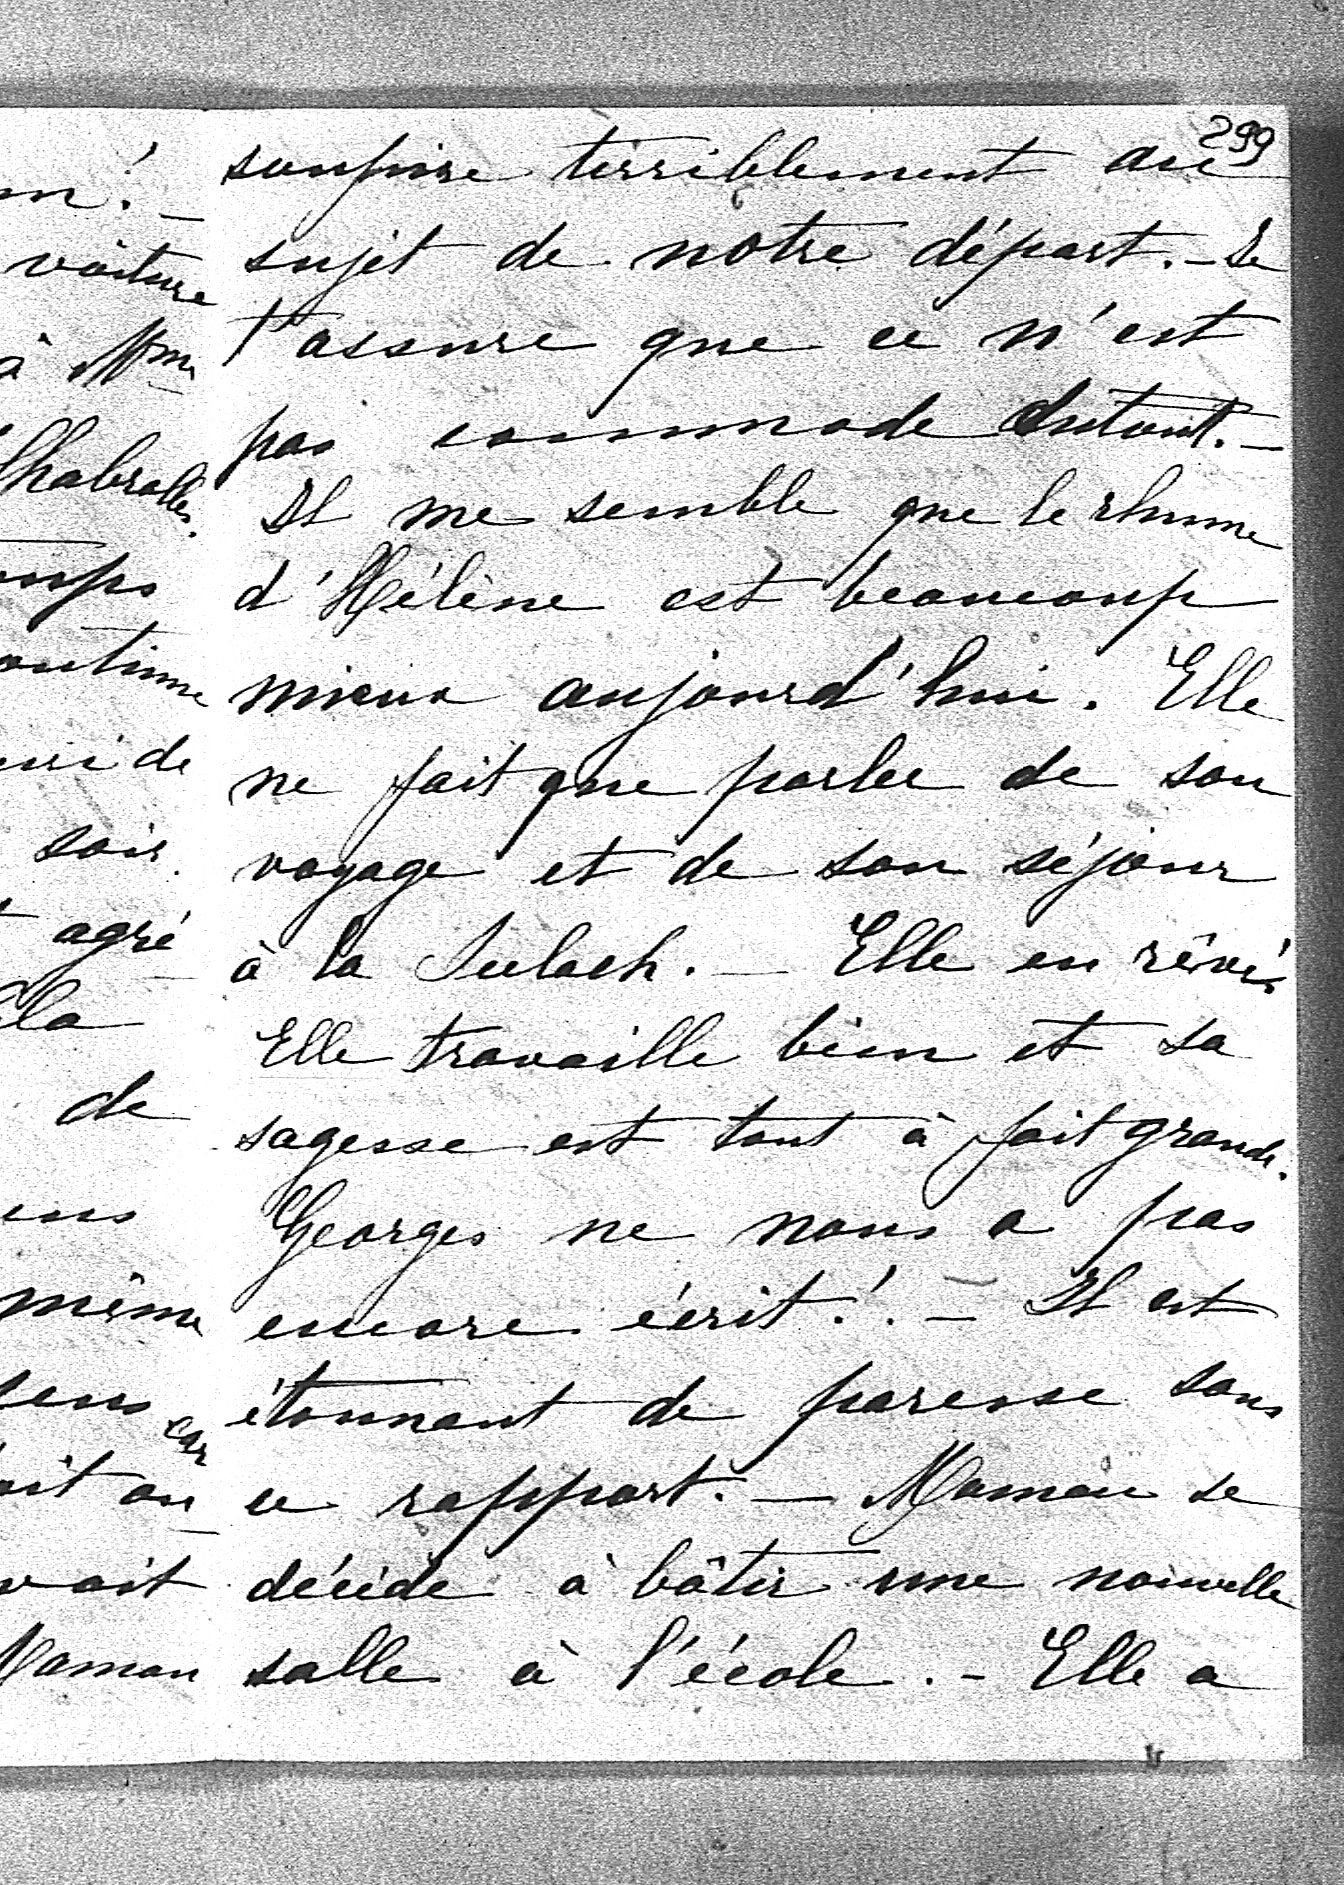 299
n! –
voiture
à Mme
Chabrolles.
emps
continue
uri de
soir.
agré
Cela
de
ens
même
sens car
oit au
vait
Maman
soupire terriblement au
sujet de notre départ. – Je
t'assure que ce n'est
pas commode dutout. –
Il me semble que le rhume
d'Hélène est beaucoup
mieux aujourd'hui. Elle
ne fait que parler de son
voyage et de son séjour
à la Sulach. – Elle en rêve.
Elle travaille bien et sa
sagesse est tout à fait grande.
Georges ne nous a pas
encore écrit! – Il est
étonnant de paresse sous
ce rapport. – Maman se
décide à bâtir une nouvelle
salle à l'école. – Elle a